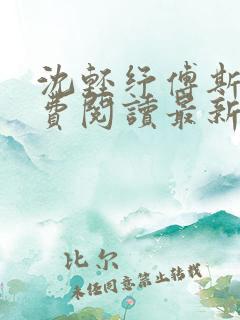 沈輕紓傅斯
費閱讀最新
比尔
未经同意禁止转载